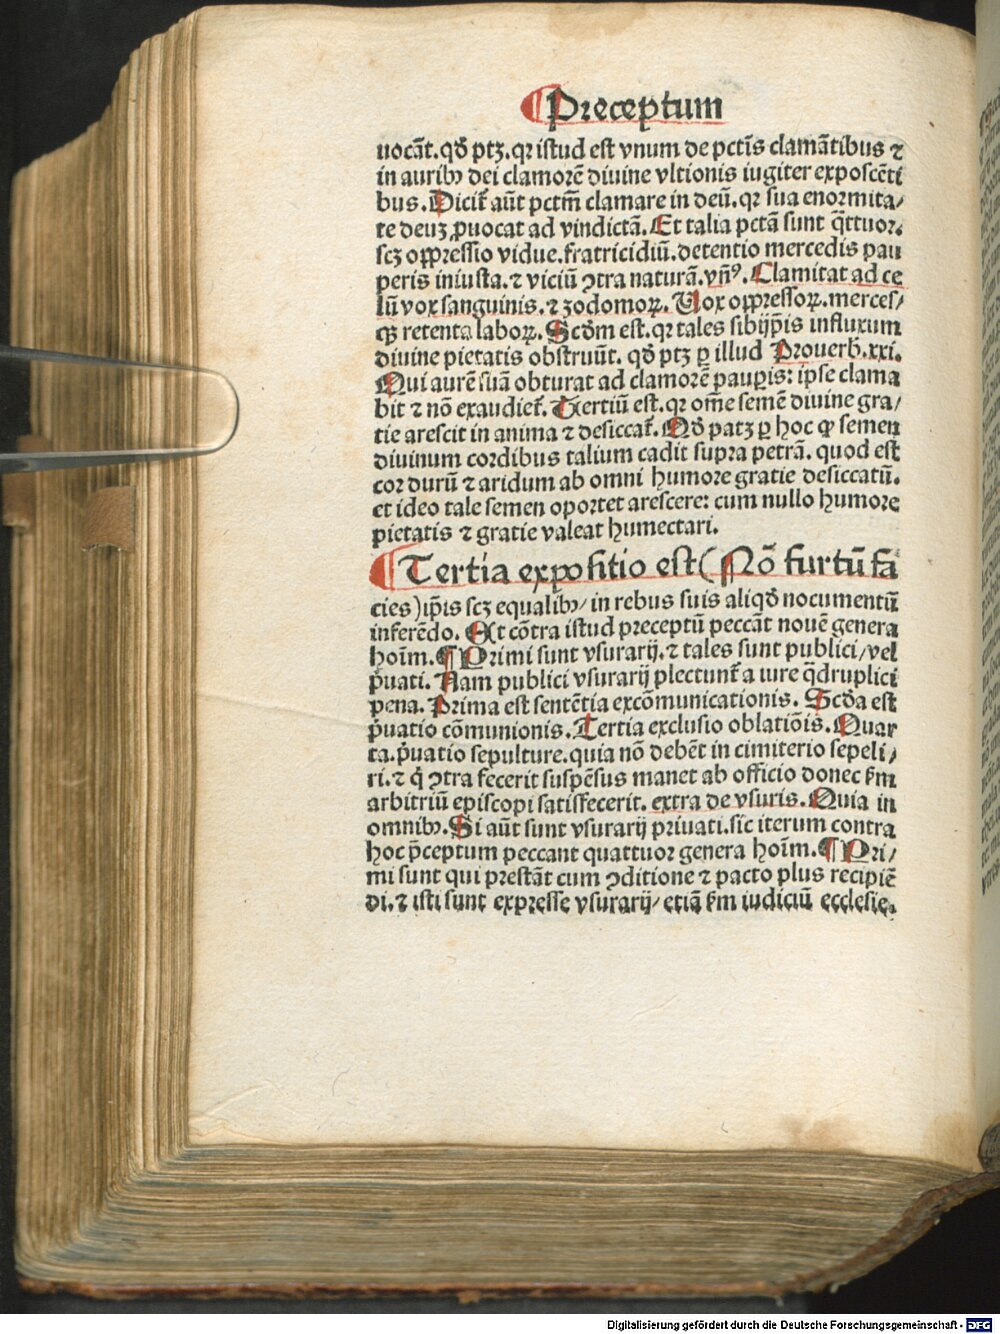 ¶Preceptum
uocãt. qđ ptꝫ. qꝛ istud est vnum de pctĩs clamãtibus ⁊
in auribꝫ dei clamorẽ diuine vltionis iugiter exposcẽti
bus. Dicit̃ aũt pctm̃ clamare in deũ. qꝛ sua enormita/
te deuꝫ ꝓuocat ad vindictã. Et talia pctã sunt q̃ttuor.
scꝫ oppressio vidue. fratricidiũ. detentio mercedis pau
peris iniusta. ⁊ viciũ ꝯtra naturã. vñꝰ. Clamitat ad ce
lũ vox sanguinis. ⁊ zodomoꝝ. Uox oppressoꝝ. merces/
qꝫ retenta laboꝝ. Scđm est. qꝛ tales sibijp̃is influxum
diuine pietatis obstruũt. qđ ptꝫ ꝑ illud Prouerb. xxi.
Qui aurẽ suã obturat ad clamorẽ pauꝑis: ipse clama
bit ⁊ nõ exaudiet̃. Tertiũ est. qꝛ om̃e semẽ diuine gra/
tie arescit in anima ⁊ desiccat̃. Qđ patꝫ ꝑ hoc ꝙ semen
diuinum cordibus talium cadit supra petrã. quod est
cor durũ ⁊ aridum ab omni humore gratie desiccatũ.
et ideo tale semen oportet arescere: cum nullo humore
pietatis ⁊ gratie valeat humectari.
¶Tertia expositio est (Nõ furtũ fa
cies) ip̃is scꝫ equalibꝫ/ in rebus suis aliqđ nocumentũ
inferẽdo. Et cõtra istud preceptũ peccãt nouẽ genera
hoĩm. ¶Primi sunt vsurarij. ⁊ tales sunt publici/ vel
p̃uati. Nam publici vsurarij plectunt̃ a iure q̃druplici
pena. Prima est sentẽtia excõmunicationis. Scđa est
p̃uatio cõmunionis. Tertia exclusio oblatiõis. Quar
ta. p̃uatio sepulture. quia nõ debẽt in cimiterio sepeli/
ri. ⁊ q̇ ꝯtra fecerit suspẽsus manet ab officio donec km̃
arbitriũ episcopi satisfecerit. extra de vsuris. Quia in
omnibꝫ. Si aũt sunt vsurarij priuati. sic iterum contra
hoc p̃ceptum peccant quattuor genera hoĩm. ¶Pri/
mi sunt qui prestãt cum ꝯditione ⁊ pacto plus recipiẽ
di. ⁊ isti sunt expresse vsurarij/ etiã km̃ iudiciũ ecclesie.
Digitalisierung gefördert durch die Deutsche Forschungsgemeinschaft - DFG